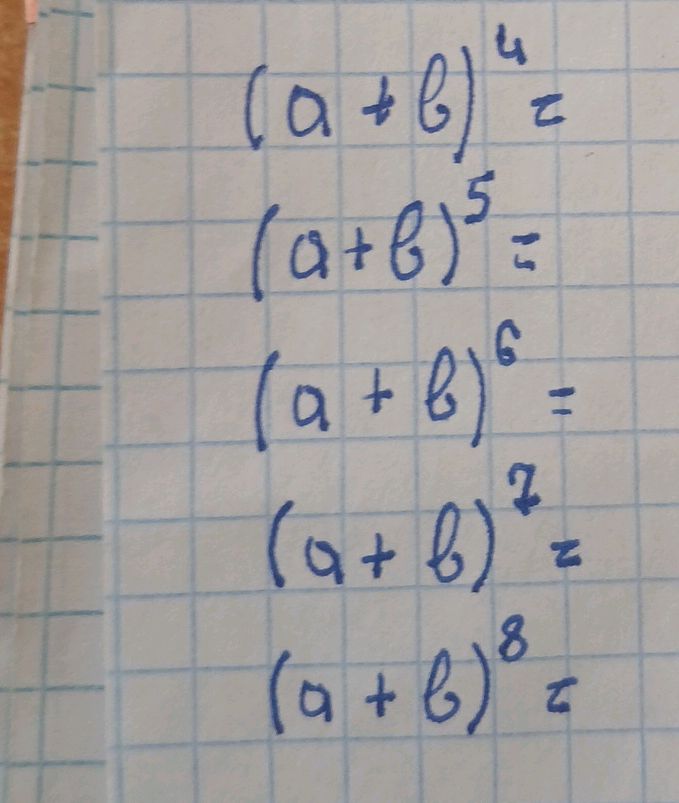 (a + b)⁴ =
(a + b)⁵ =
(a + b)⁶ =
(a + b)⁷ =
(a + b)⁸ =